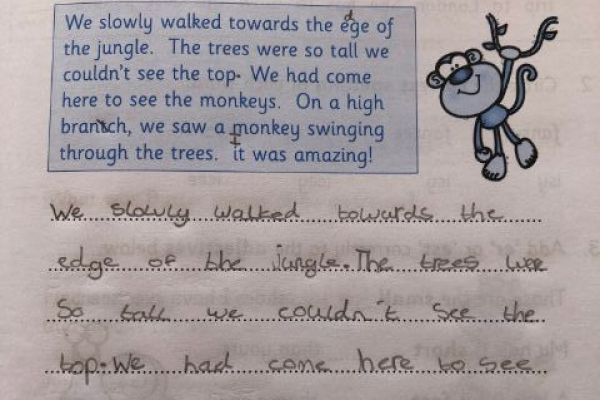 We slowly walked towards the edge of
the jungle. The trees were so tall we
couldn't see the top. We had come
here to see the monkeys. On a high
branch, we saw a monkey swinging
through the trees. It was amazing!
We slowly walked towards the
edge of the jungle. The trees
So tall we couldn't see the
top. We had come here to see